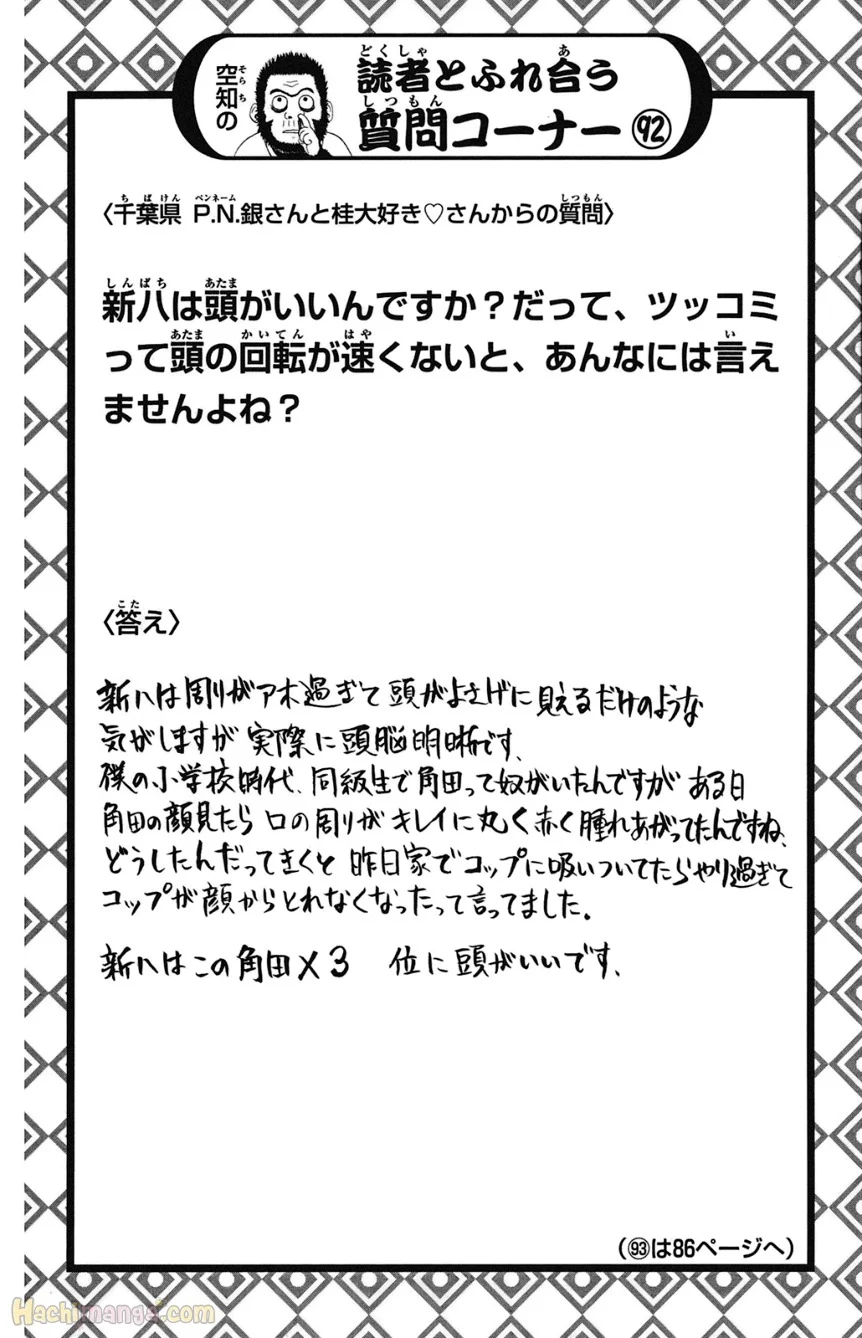 空知の
読者とふれ合う
質問コーナー㉜
〈千葉県 P.N.銀さんと桂大好き♡さんからの質問〉
新八は頭がいいんですか？だって、ツッコミ
って頭の回転が速くないと、あんなには言え
ませんよね？
〈答え〉
新八は周りがアホ過ぎて頭がよさげに見えるだけのような
気がしますが実際に頭脳明晰です、
僕の小学校時代、同級生で角田って奴がいたんですが ある日
角田の顔見たら 口の周りが キレイに丸く赤く腫れあがってたんですね、
どうしたんだってきくと 昨日家でコップに吸いついてたらやり過ぎて
コップが顔からとれなくなったって言ってました。
新八はこの角田×3 位に頭がいいです、
（93は86ページへ）
Hachimanga.com